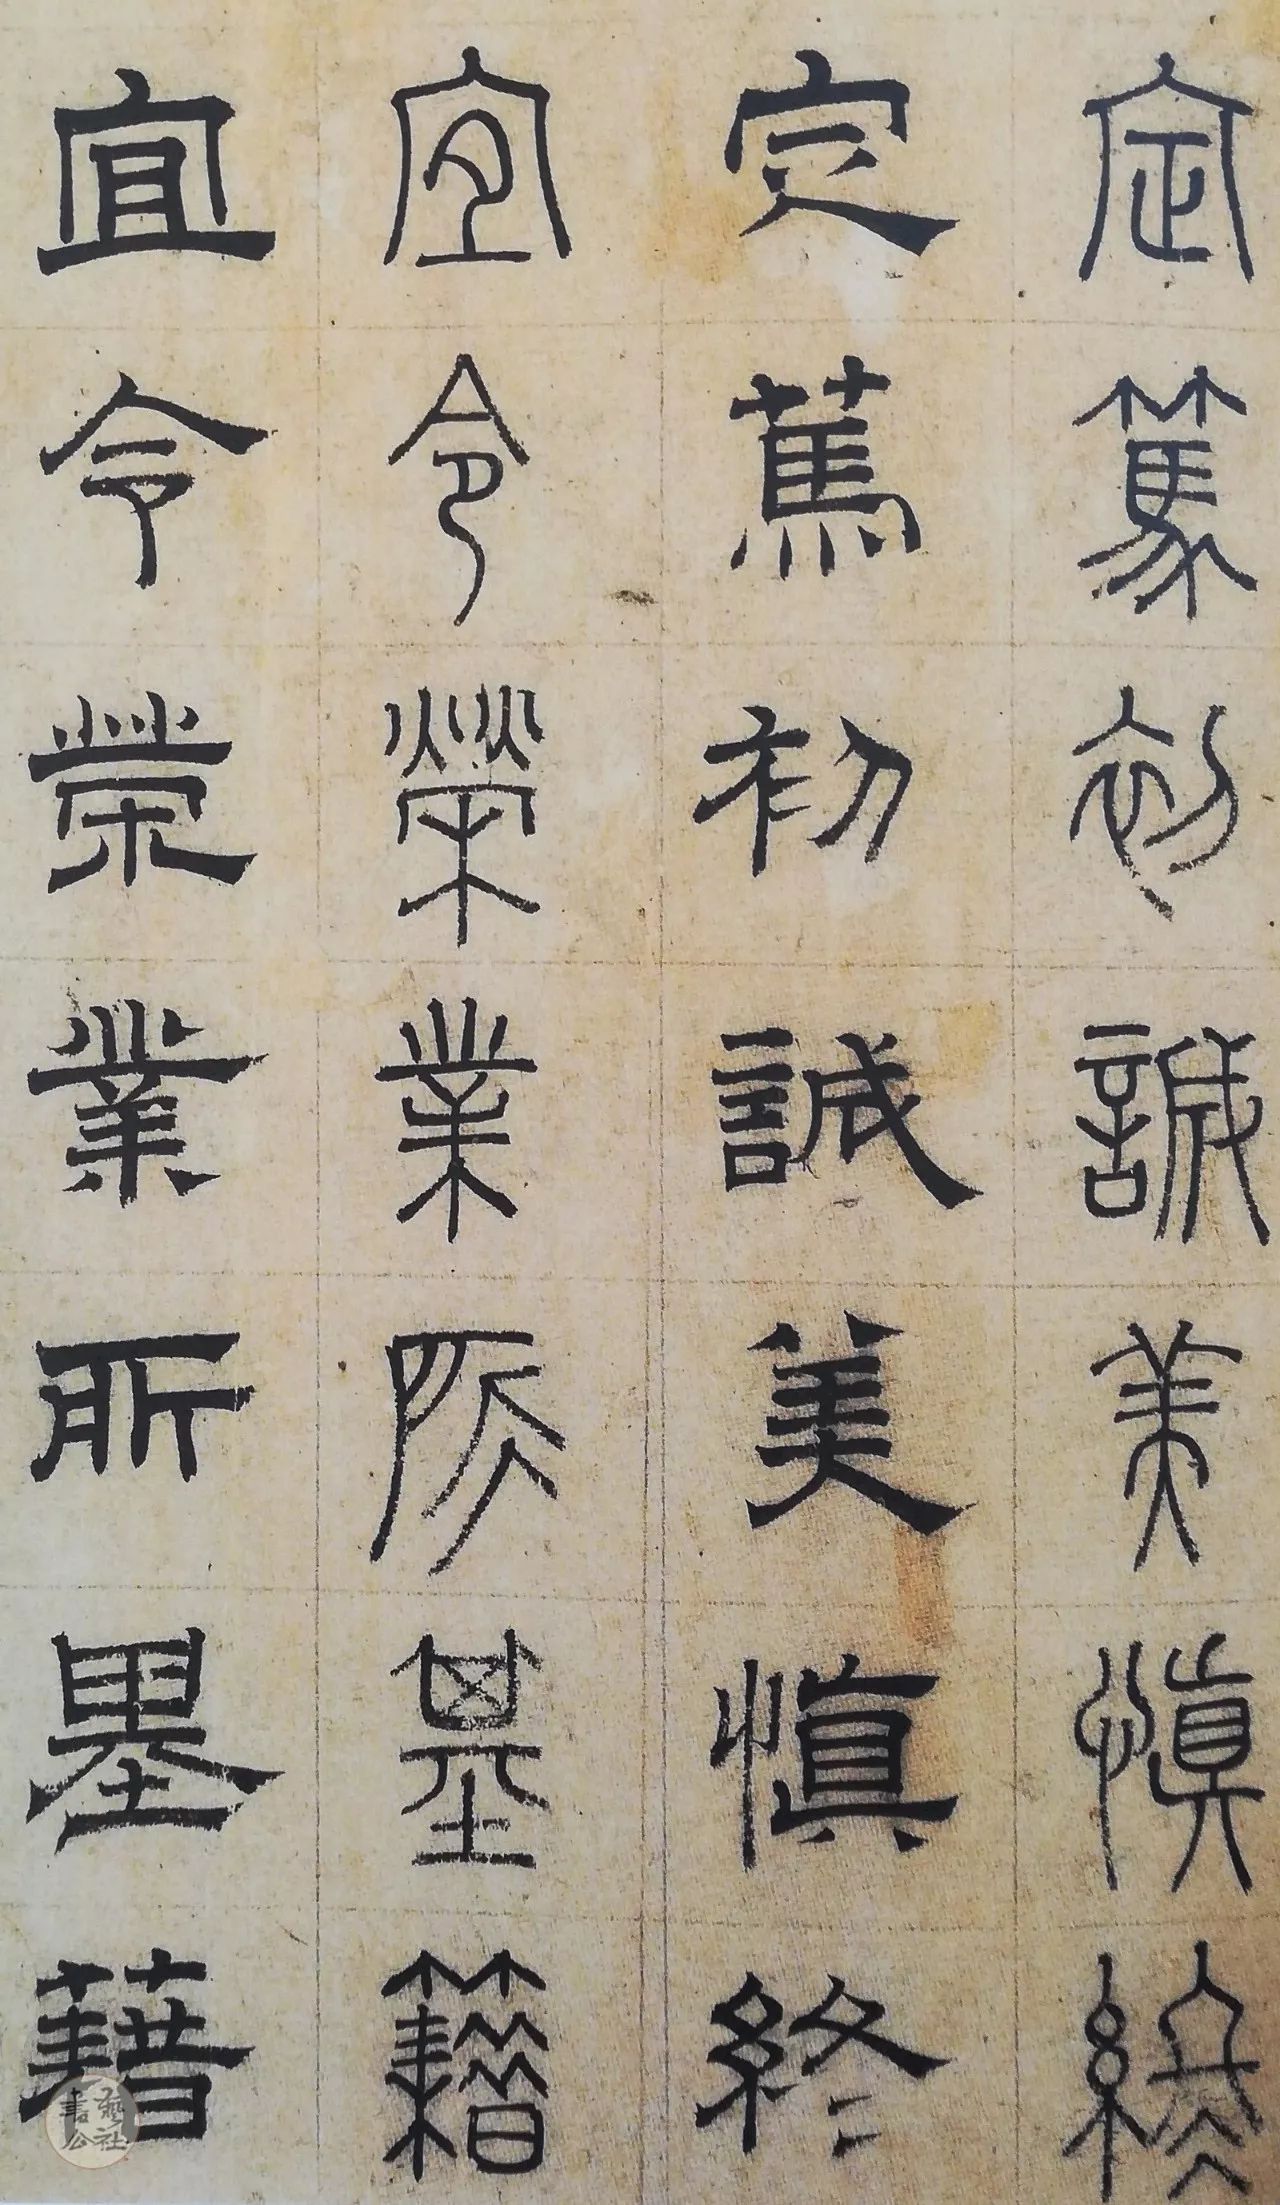 定篤初誠美慎終
定篤初誠美慎終
宜令榮業所基籍
宜令榮業所基籍
書藝公社